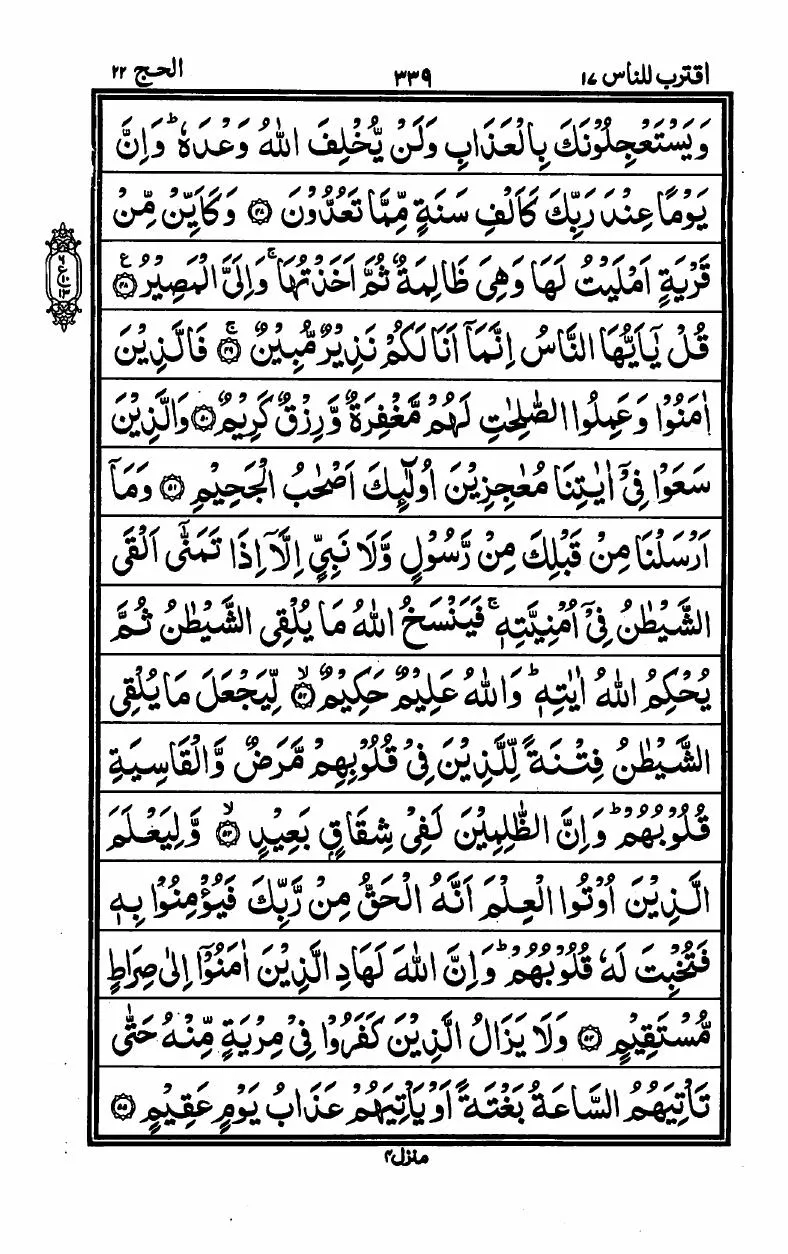 اقترب للناس ١٧ ٣٣٩ الحج ٢٢
وَيَسْتَعْجِلُوْنَكَ بِالْعَذَابِ وَلَنْ يُّخْلِفَ اللّٰهُ وَعْدَهٗ ؕ وَاِنَّ
يَوْمًا عِنْدَ رَبِّكَ كَاَلْفِ سَنَةٍ مِّمَّا تَعُدُّوْنَ ﴿۴۷﴾ وَكَاَيِّنْ مِّنْ
قَرْيَةٍ اَمْلَيْتُ لَهَا وَهِىَ ظَالِمَةٌ ثُمَّ اَخَذْتُهَا ۚ وَاِلَىَّ الْمَصِيْرُ ﴿۴۸﴾ ع
قُلْ يٰۤاَيُّهَا النَّاسُ اِنَّمَاۤ اَنَا لَكُمْ نَذِيْرٌ مُّبِيْنٌ ۚ ﴿۴۹﴾ فَالَّذِيْنَ
اٰمَنُوْا وَعَمِلُوا الصّٰلِحٰتِ لَهُمْ مَّغْفِرَةٌ وَّرِزْقٌ كَرِيْمٌ ﴿۵۰﴾ وَالَّذِيْنَ
سَعَوْا فِىْۤ اٰيٰتِنَا مُعٰجِزِيْنَ اُولٰٓئِكَ اَصْحٰبُ الْجَحِيْمِ ﴿۵۱﴾ وَمَاۤ
اَرْسَلْنَا مِنْ قَبْلِكَ مِنْ رَّسُوْلٍ وَّلَا نَبِىٍّ اِلَّاۤ اِذَا تَمَنّٰٓى اَلْقَى
الشَّيْطٰنُ فِىْۤ اُمْنِيَّتِهٖ ۚ فَيَنْسَخُ اللّٰهُ مَا يُلْقِى الشَّيْطٰنُ ثُمَّ
يُحْكِمُ اللّٰهُ اٰيٰتِهٖ ؕ وَاللّٰهُ عَلِيْمٌ حَكِيْمٌ ۙ ﴿۵۲﴾ لِّيَجْعَلَ مَا يُلْقِى
الشَّيْطٰنُ فِتْنَةً لِّلَّذِيْنَ فِىْ قُلُوْبِهِمْ مَّرَضٌ وَّالْقَاسِيَةِ
قُلُوْبُهُمْ ؕ وَاِنَّ الظّٰلِمِيْنَ لَفِىْ شِقَاقٍۭ بَعِيْدٍ ۙ ﴿۵۳﴾ وَّلِيَعْلَمَ
الَّذِيْنَ اُوْتُوا الْعِلْمَ اَنَّهُ الْحَقُّ مِنْ رَّبِّكَ فَيُؤْمِنُوْا بِهٖ
فَتُخْبِتَ لَهٗ قُلُوْبُهُمْ ؕ وَاِنَّ اللّٰهَ لَهَادِ الَّذِيْنَ اٰمَنُوْۤا اِلٰى صِرَاطٍ
مُّسْتَقِيْمٍ ﴿۵۴﴾ وَلَا يَزَالُ الَّذِيْنَ كَفَرُوْا فِىْ مِرْيَةٍ مِّنْهُ حَتّٰى
تَاْتِيَهُمُ السَّاعَةُ بَغْتَةً اَوْ يَاْتِيَهُمْ عَذَابُ يَوْمٍ عَقِيْمٍ ﴿۵۵﴾
منزل ۴